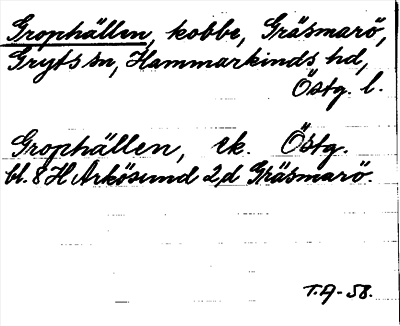 Grophällen, kobbe, Gräsmarö,
Gryts sn, Hammarkinds hd,
Östg. l.
Grophällen, ek. Östg.
bl. 8 H Arkösund 2d Gräsmarö.
T.A-58.